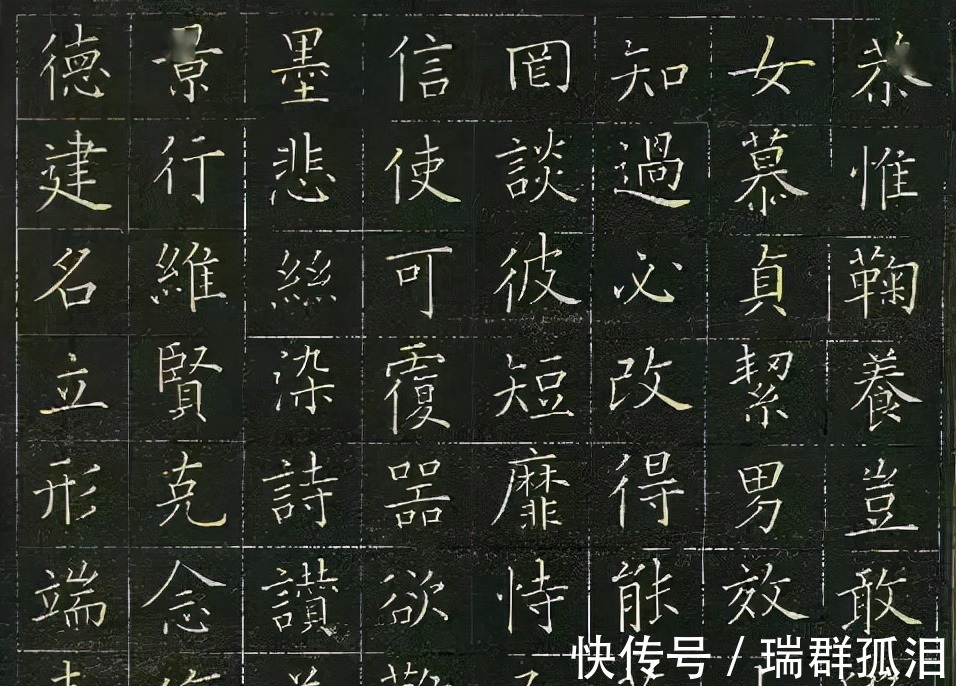 恭惟鞠養豈敢
女慕貞絜男效
知過必改得能
罔談彼短靡恃
信使可覆器欲
墨悲絲染詩讚
景行維賢克念
德建名立形端
快传号 / 瑞群孤泪